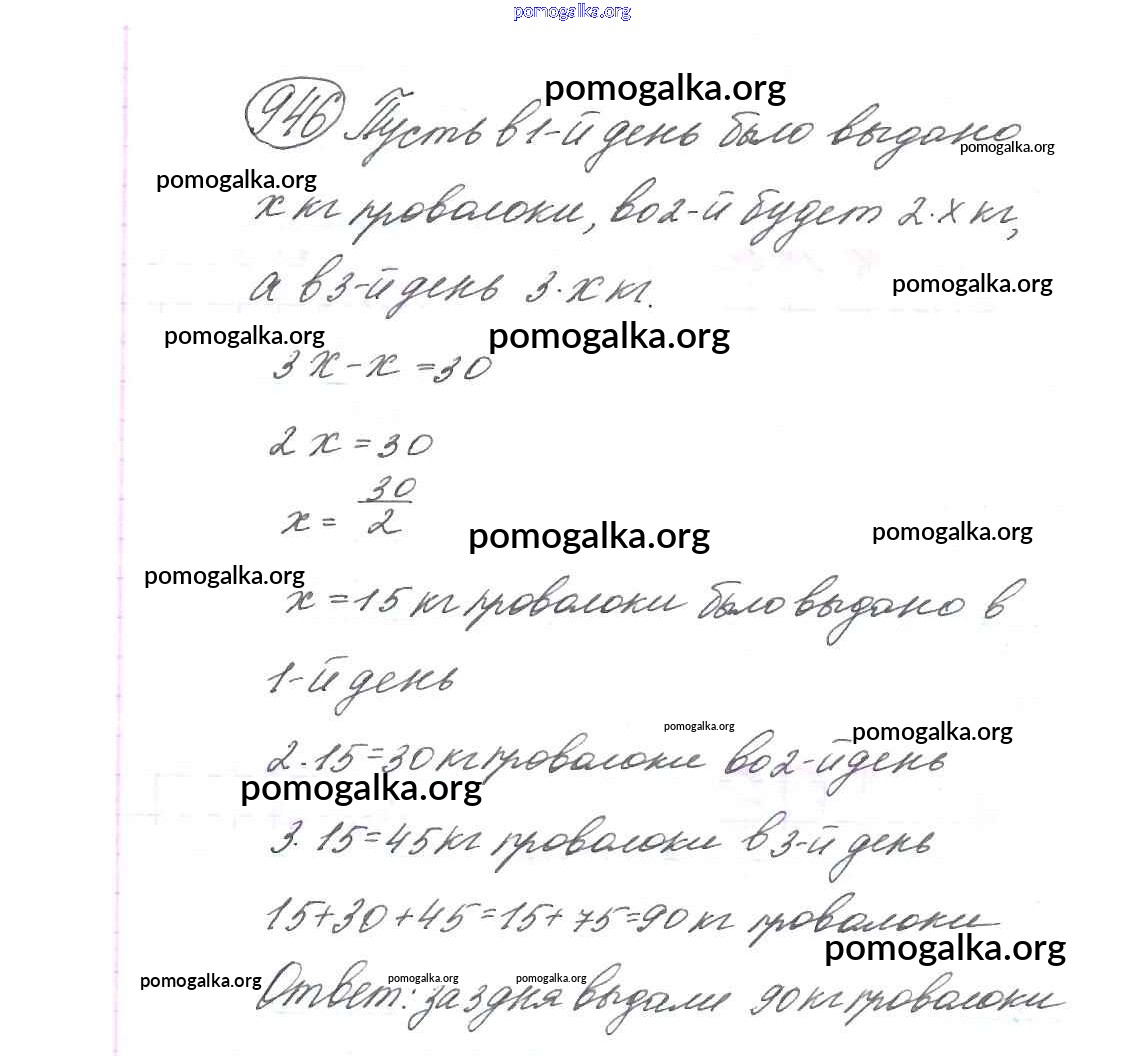 pomogalka.org
pomogalka.org
946 Пусть в 1-й день было выдано
pomogalka.org
pomogalka.org
х кг проволоки, во 2-й будет 2·х кг,
а в 3-й день 3·х кг.
pomogalka.org
pomogalka.org
pomogalka.org
3х-х=30
2х=30
х= 30/2
pomogalka.org
pomogalka.org
pomogalka.org
х=15 кг проволоки было выдано в
1-й день
pomogalka.org
pomogalka.org
2·15=30 кг проволоки во 2-й день
pomogalka.org
3·15=45 кг проволоки в 3-й день
15+30+45=15+75=90 кг проволоки
pomogalka.org
pomogalka.org
pomogalka.org
pomogalka.org
Ответ: за 3 дня выдали 90 кг проволоки